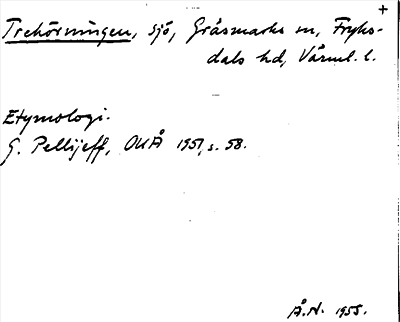 +
Trehörningen, sjö, Gräsmarks sn, Fryks-
dals hd, Värml. l.
Etymologi.
G. Pellijeff, OUÅ 1951, s. 58.
Å.N. 1955.